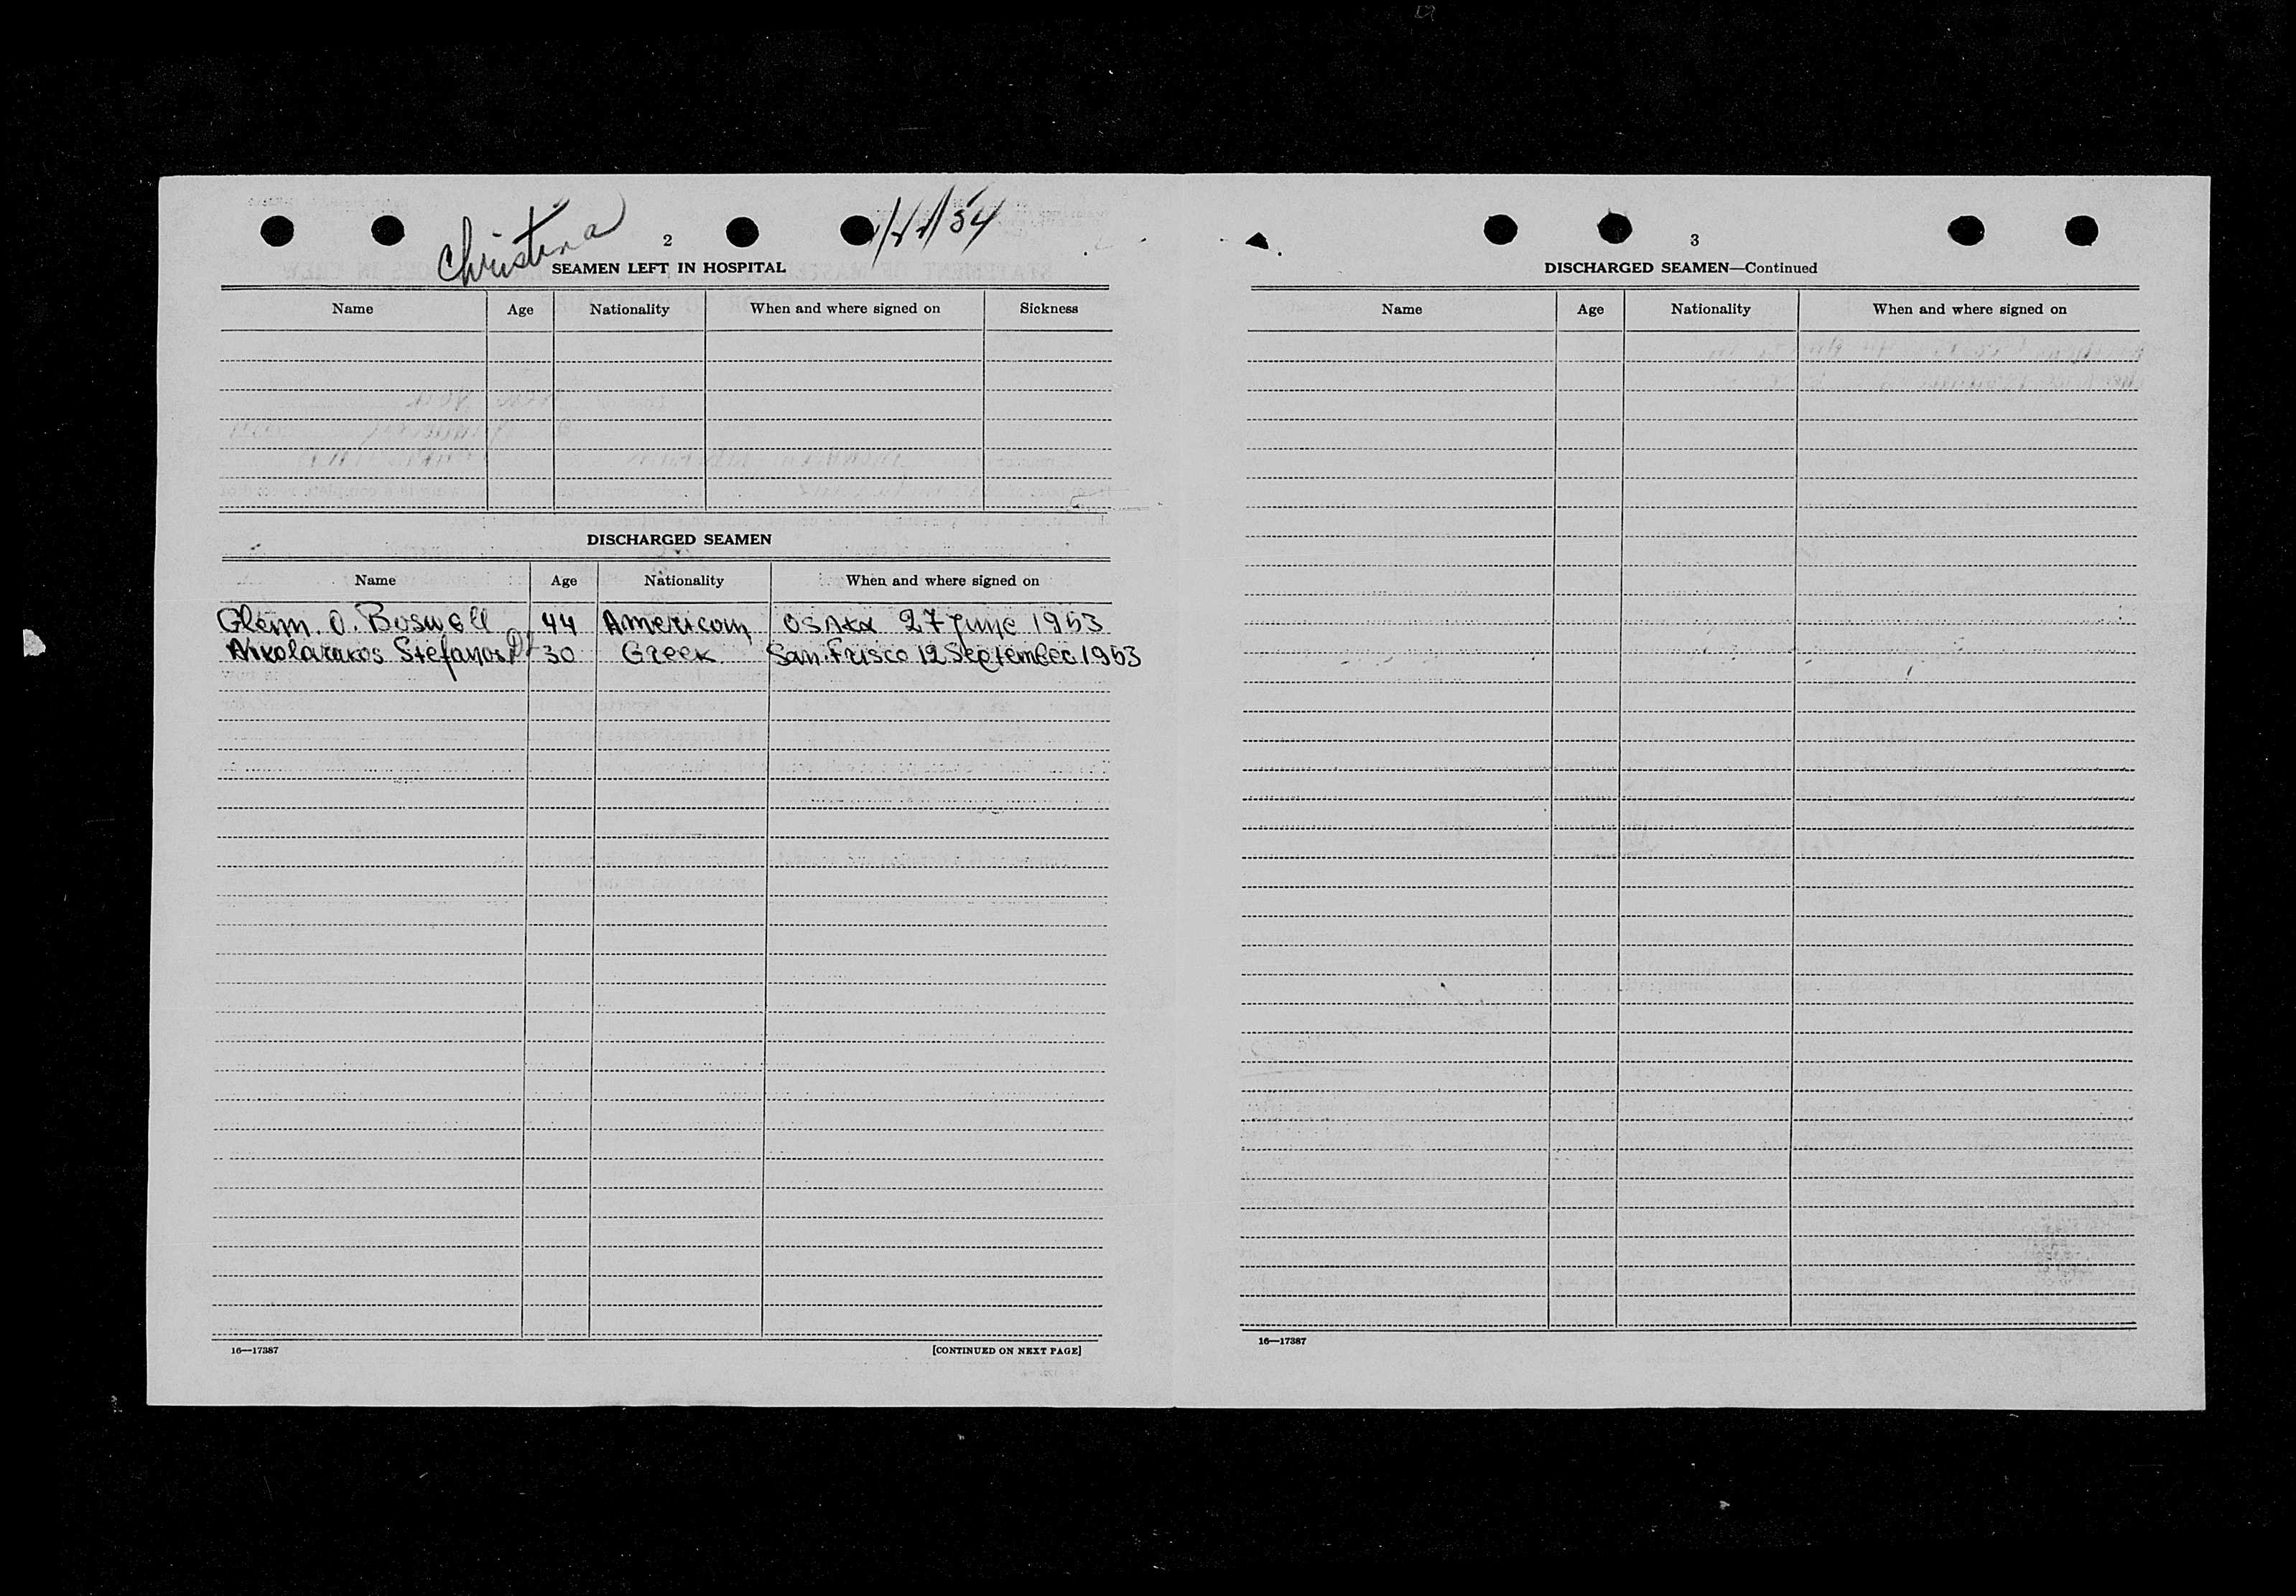 Christina
2
SEAMEN LEFT IN HOSPITAL
Name Age Nationality When and where signed on Sickness
DISCHARGED SEAMEN
Name Age Nationality When and where signed on
Glenn. O. Boswell 44 American OSAKA 27 June 1953
Nikolarakos Stefanos 30 Greek San. Frisco 12 September 1953
16—17387 [CONTINUED ON NEXT PAGE]
3
DISCHARGED SEAMEN—Continued
Name Age Nationality When and where signed on
16—17387